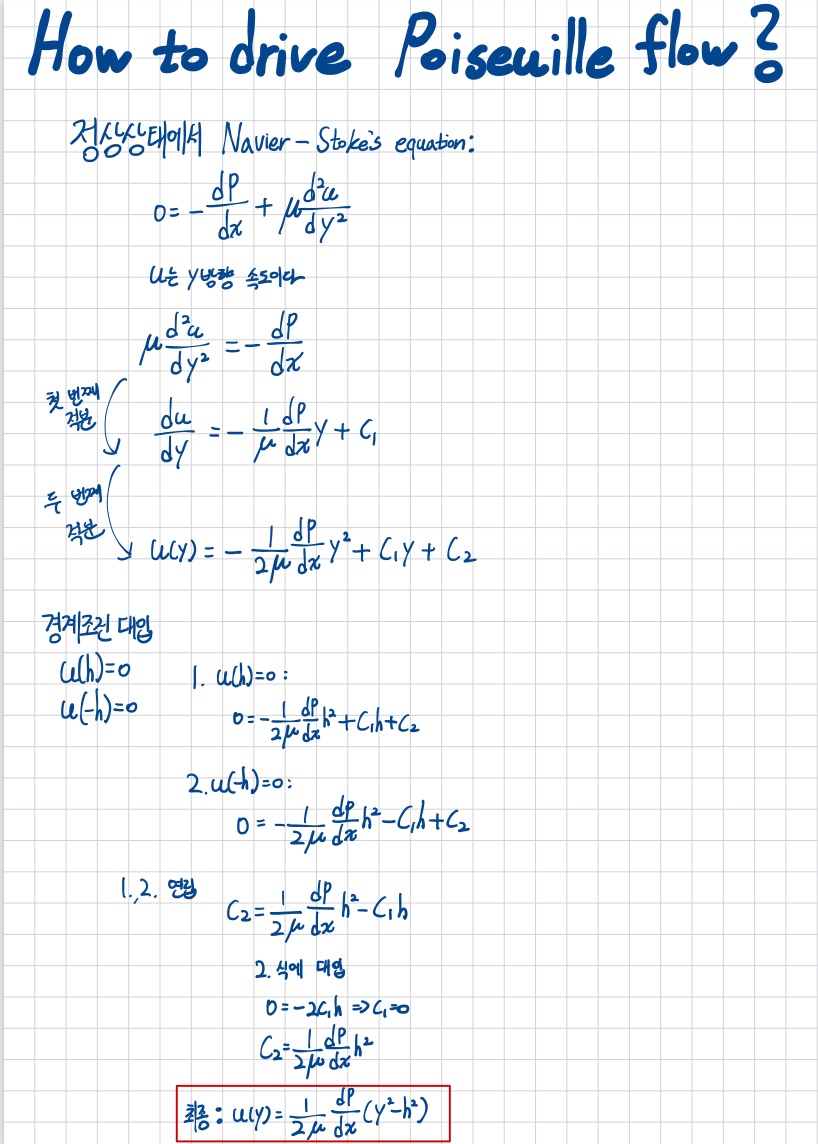 How to drive Poiseuille flow?
정상상태에서 Navier-Stoke's equation:
0 = -dP/dx + μ d²u/dy²
u는 y방향 속도이다
μ d²u/dy² = -dP/dx
첫 번째
적분
du/dy = -1/μ dP/dx y + C₁
두 번째
적분
u(y) = -1/2μ dP/dx y² + C₁y + C₂
경계조건 대입
u(h)=0
u(-h)=0
1. u(h)=0:
0 = -1/2μ dP/dx h² + C₁h + C₂
2. u(-h)=0:
0 = -1/2μ dP/dx h² - C₁h + C₂
1.,2. 연립
C₂ = 1/2μ dP/dx h² - C₁h
2. 식에 대입
0 = -2C₁h ⇒ C₁=0
C₂ = 1/2μ dP/dx h²
최종: u(y) = 1/2μ dP/dx (y²-h²)